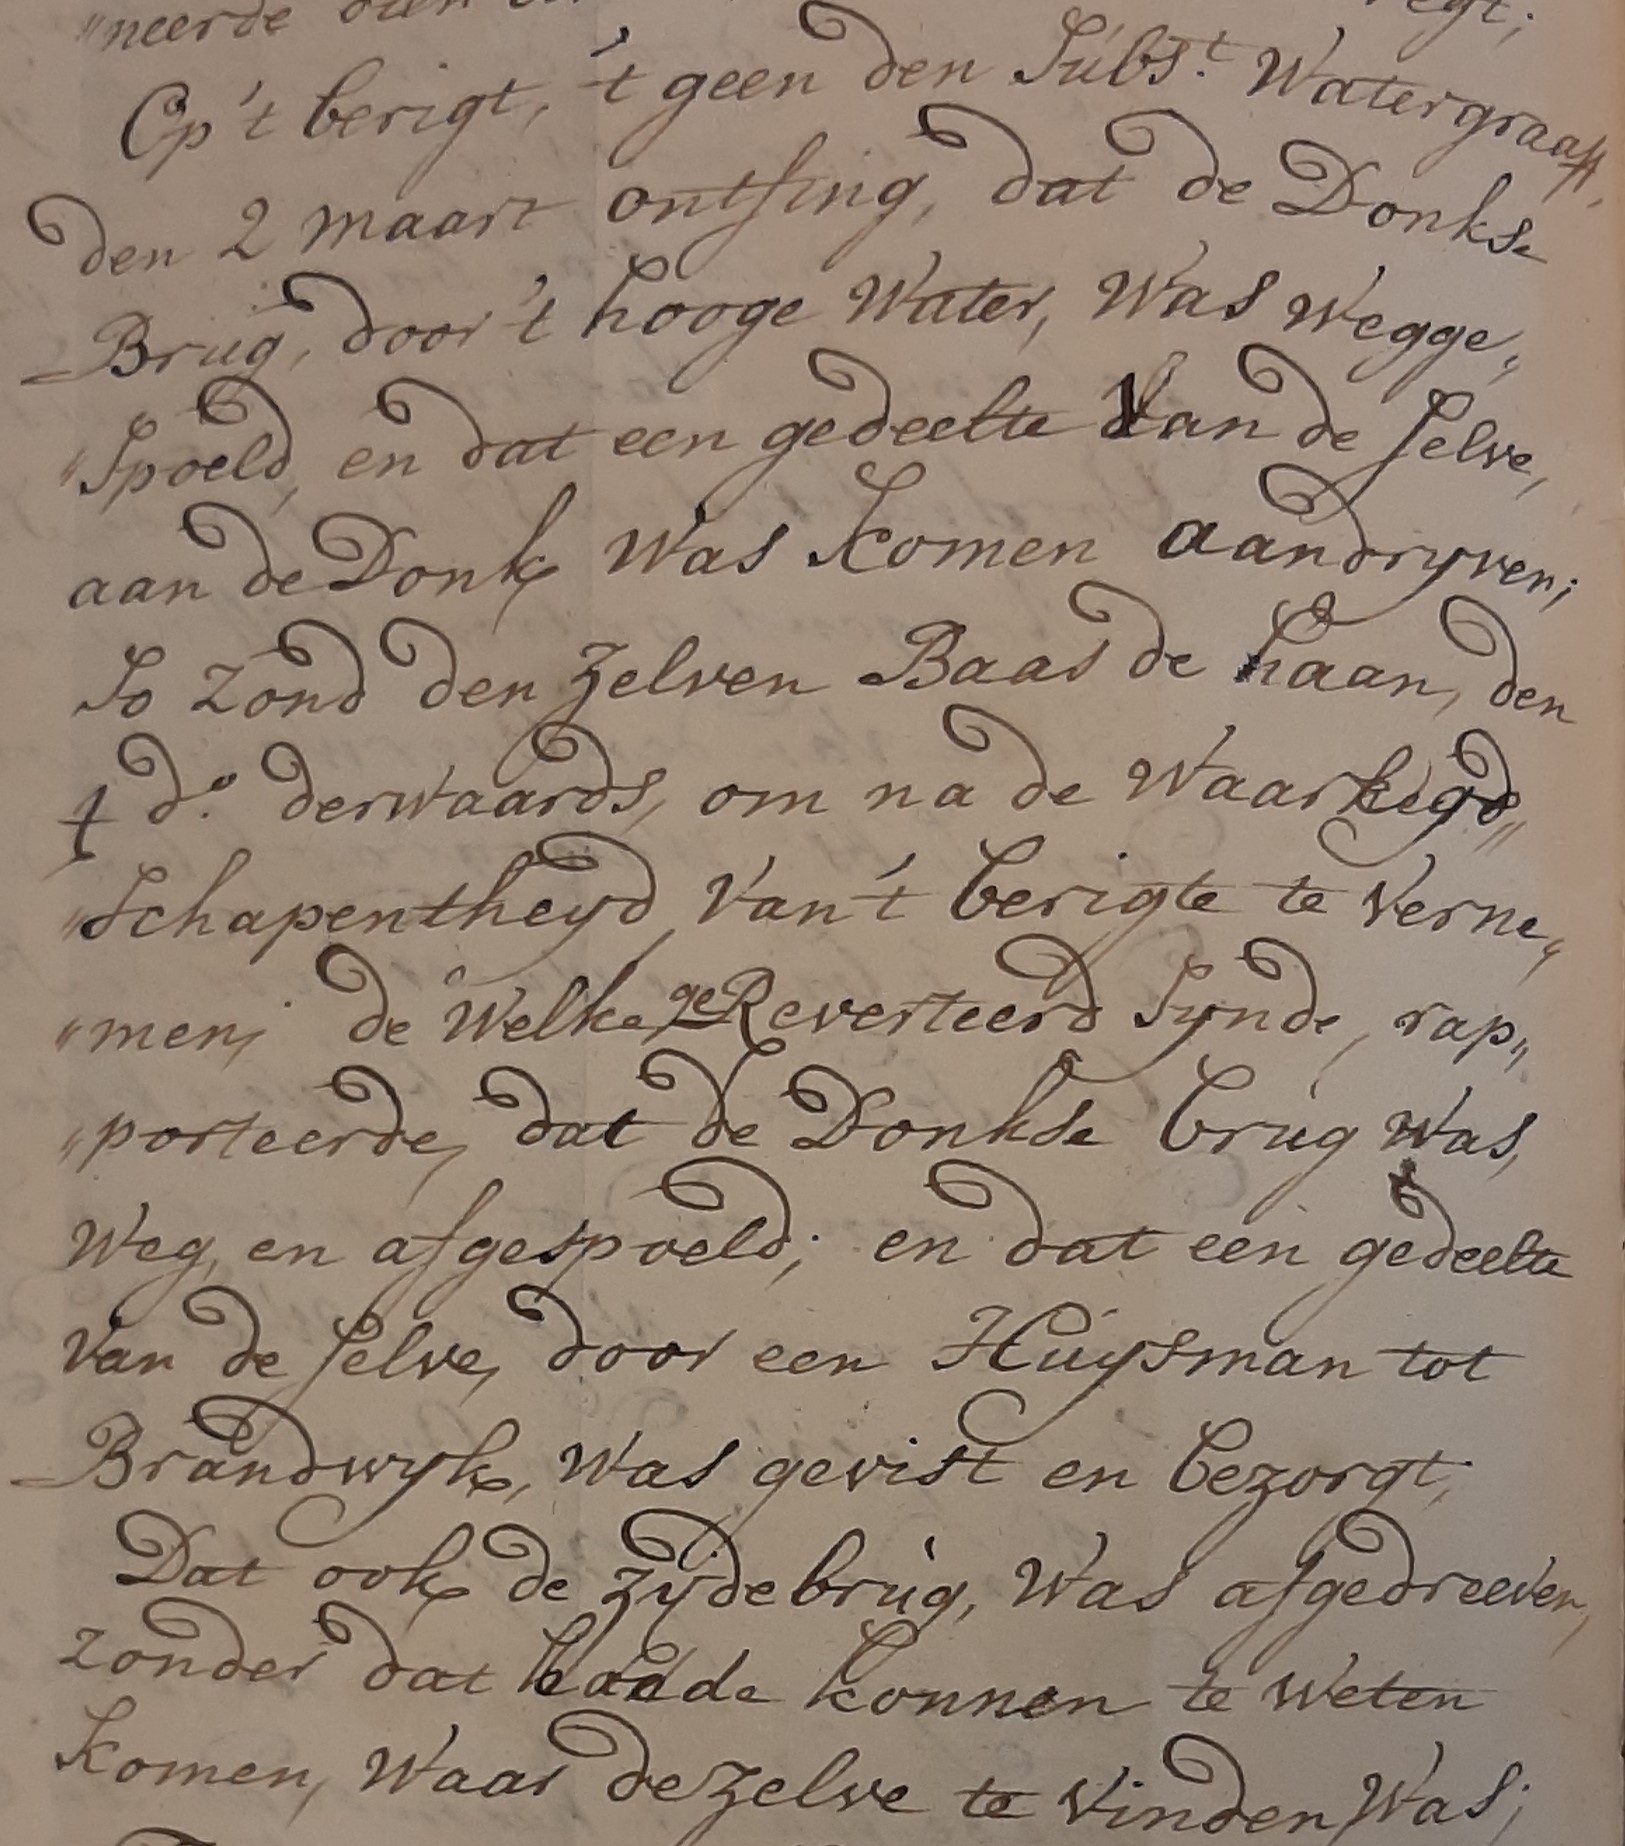 "neerde
Op 't berigt, 't geen den Subst. Watergraaff,
den 2 maart ontfing, dat de Donkse
Brug, door 't hooge Water, Was Wegge„
"Spoeld, en dat een gedeelte Van de selve,
aan de Donk Was komen aandryven;
So Zond den zelven Baas de haan, den
4 do. derwaards, om na de Waarhegd„
"Schapentheyd Van't berigte te Verne„
"men; de Welke geReverteerd Synde, rap„
"porteerde, dat de Donkse brug Was,
Weg, en afgespoeld; en dat een gedeelte
Van de selve, door een Huysman tot
Brandwyk, Was gevist en bezorgt;
Dat ook de zydebrug, Was afgedreeven,
Zonder dat hadde konnen te Weten
komen, Waar dezelve te Vinden Was;